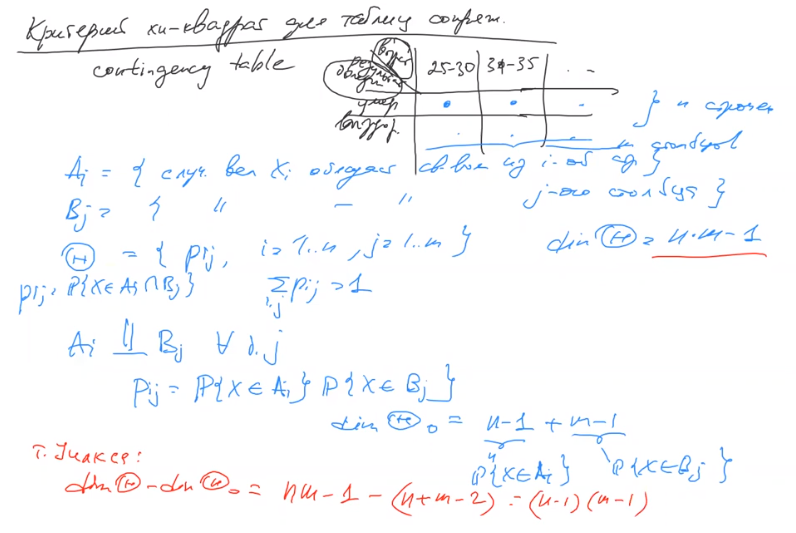 Критерий хи-квадрат для таблиц сопряж.
contingency table
возраст
25-30 | 31-35 | ...
умер
выздор.
} n строчек
m столбцов
A_i = { случ. вел X_i обладает св-вом из i-ой стр }
B_j = { " — " j-ого столбца }
Θ = { p_ij, i=1..n, j=1..m } dim Θ = n·m-1
p_ij = ℙ{X∈A_i∩B_j} Σ_{i,j} p_ij = 1
A_i ⫫ B_j ∀ i,j
p_ij = ℙ{X∈A_i} ℙ{X∈B_j}
dim Θ_0 = n-1 + m-1
ℙ{X∈A_i} ℙ{X∈B_j}
т. Уилкса:
dim Θ - dim Θ_0 = nm-1-(n+m-2) = (n-1)(m-1)